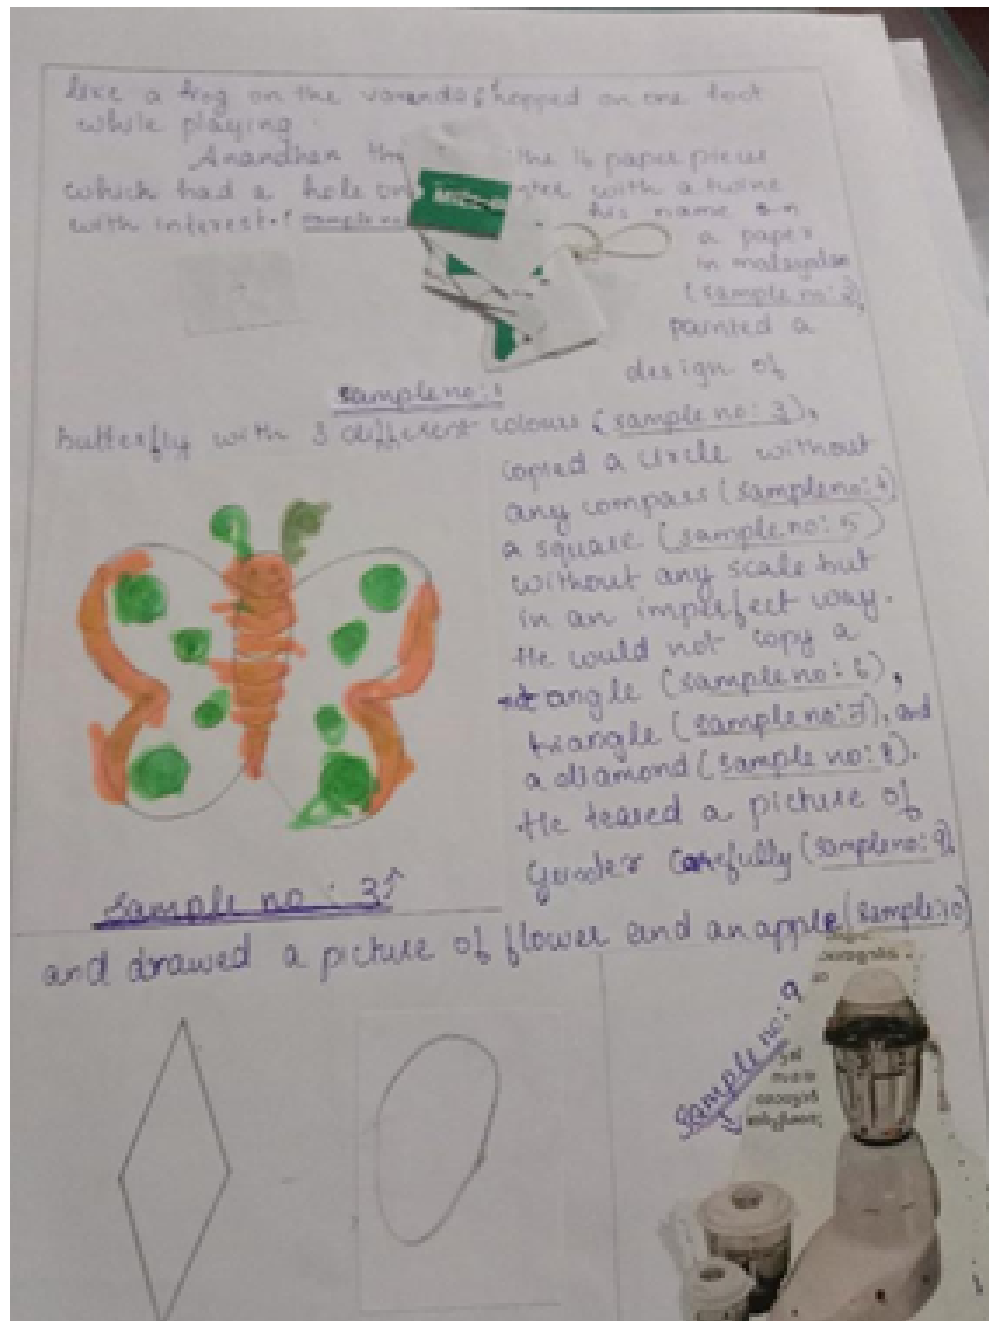 like a frog on the varenda, hopped on one foot
while playing.
Anandhan the 16 paper pieces
which had a hole on with a twine
with interest. (sample no his name on
a paper
in malayalam
(sample no: 2),
painted a
design of
sample no: 1
butterfly with 3 different colours (sample no: 3),
copied a circle without
any compass (sample no: 4)
a square (sample no: 5)
without any scale but
in an imperfect way.
He would not copy a
angle (sample no: 6),
triangle (sample no: 7), and
a diamond (sample no: 8).
He teared a picture of
carefully (sample no: 9)
sample no: 3
and drawed a picture of flower and an apple (sample: 10)
Sample no: 9